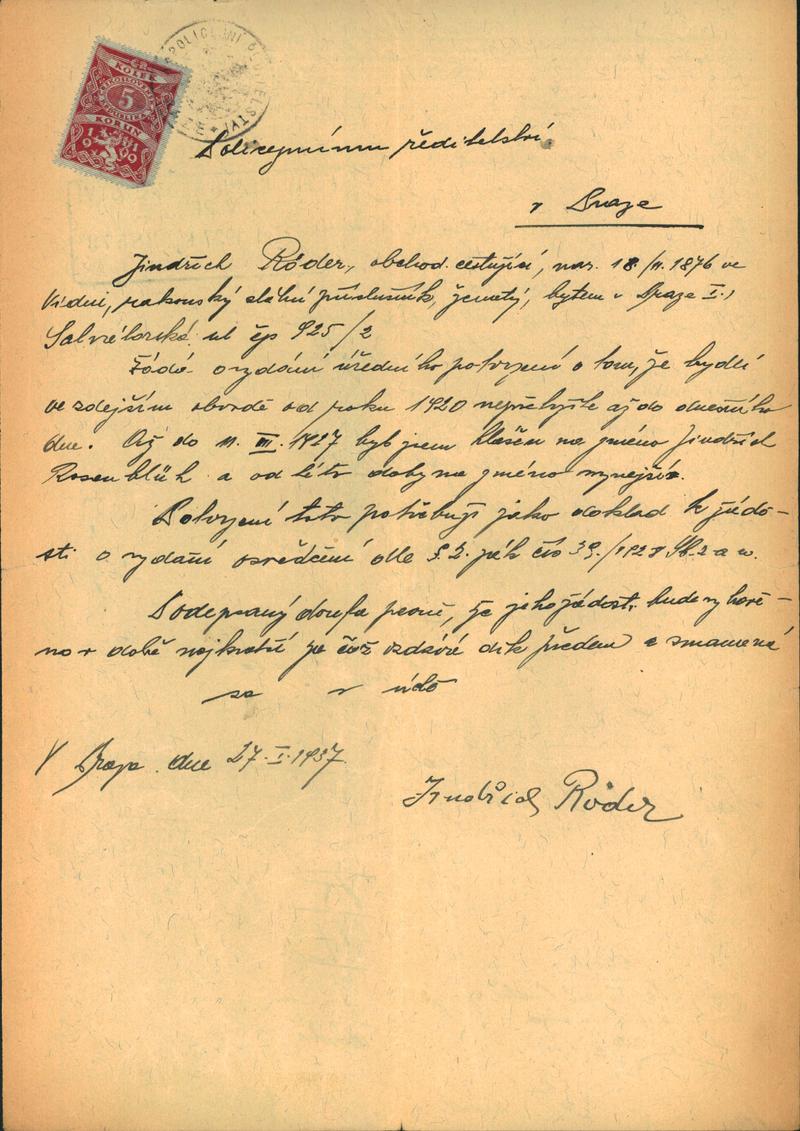 POLICEJNÍ ŘEDITELSTVÍ
KOLEK
5
KORUN
19 31
Policejnímu ředitelství
v Praze
Jindřich Röder, obchod. cestující, nar. 18/11. 1876 ve
Vídni, rakouský státní příslušník, ženatý, bytem v Praze I.,
Salvátorská ul čp 925/2
Žádá o vydání úředního potvrzení o tom, že bydlí
ve zdejším obvodě od roku 1920 nepřetržitě až do dnešního
dne. Až do 11. III. 1927 byl jsem hlášen na jméno Jindřich
Rosenblüh a od této doby na jméno nynější.
Potvrzení toto potřebuji jako doklad k žádo-
sti o vydání osvědčení dle § 2. čís 39/1928 Sb. z a n.
Podepsaný doufá pevně, že jeho žádosti bude vyhově-
no v době nejkratší za což vzdává dík předem a znamená
se v úctě
V Praze dne 27. I. 1937.
Jindřich Röder